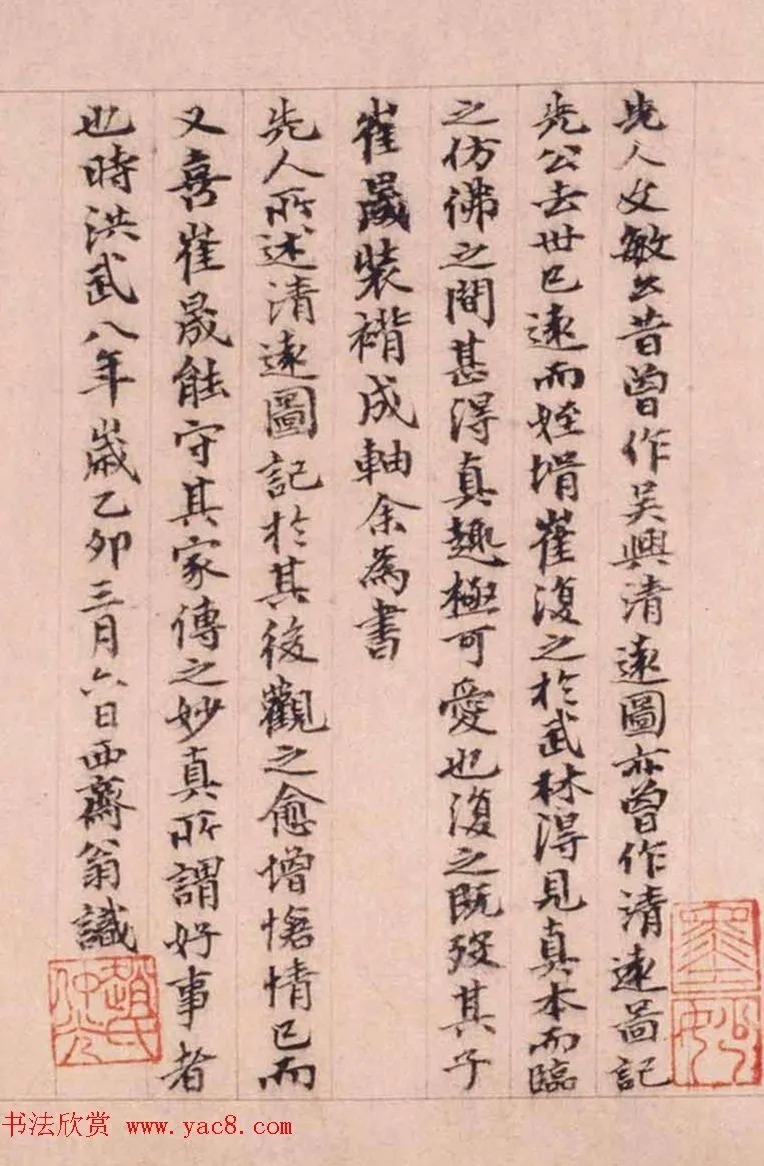 先人文敏公昔曾作吳興清遠圖亦曾作清遠圖記
先公去世已遠而姪壻崔復之於武林得見真本而臨
之仿佛之間甚得真趣極可愛也復之既歿其子
崔晟裝褙成軸余為書
先人所述清遠圖記於其後觀之愈增愴情已而
又喜崔晟能守其家傳之妙真所謂好事者
也時洪武八年歲乙卯三月六日西齋翁識
趙氏仲光
书法欣赏 www.yac8.com